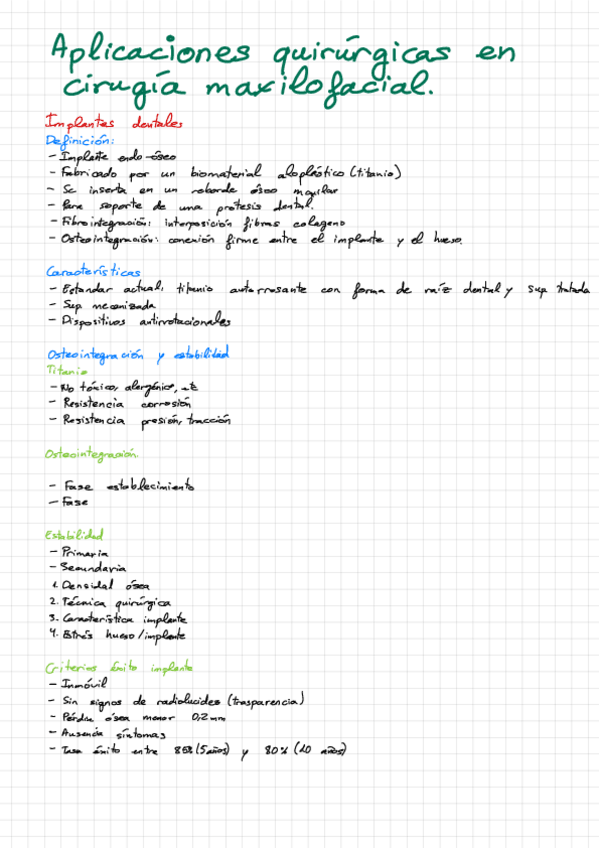 Aplicaciones quirúrgicas en
cirugía maxilofacial.
Implantes dentales
Definición:
- Implante endo-óseo
- Fabricado por un biomaterial aloplástico (titanio)
- Se inserta en un reborde óseo maxilar
- Para soporte de una protesis dental.
- Fibrointegración: interposición fibras colageno
- Osteointegración: conexión firme entre el implante y el hueso.
Características
- Estandar actual, titanio autorrosante con forma de raíz dental y sup tratada
- Sup mecanizada
- Dispositivos antirrotacionales
Osteointegración y estabilidad
Titanio
- No tóxico, alergénico, etc
- Resistencia corrosión
- Resistencia presión, tracción
Osteointegración
- Fase establecimiento
- Fase
Estabilidad
- Primaria
- Secundaria
1. Densidad ósea
2. Técnica quirúrgica
3. Característica implante
4. Estrés hueso/implante
Criterios éxito implante
- Inmóvil
- Sin signos de radiolucides (trasparencia)
- Pérdida ósea menor 0,2mm
- Ausencia síntomas
- Tasa éxito entre 85% (5 años) y 80% (10 años)